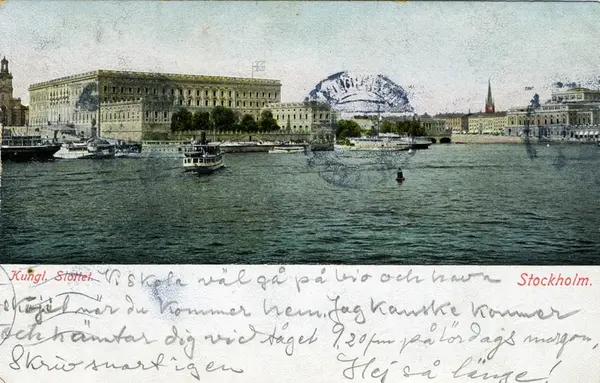 Kungl. Slottet. Stockholm.
Vi skola väl gå på bio och hava
skojet när du kommer hem. Jag kanske kommer
och hämtar dig vid tåget 9,20 fm på lördags morgon,
Skriv snart igen Hej så länge!